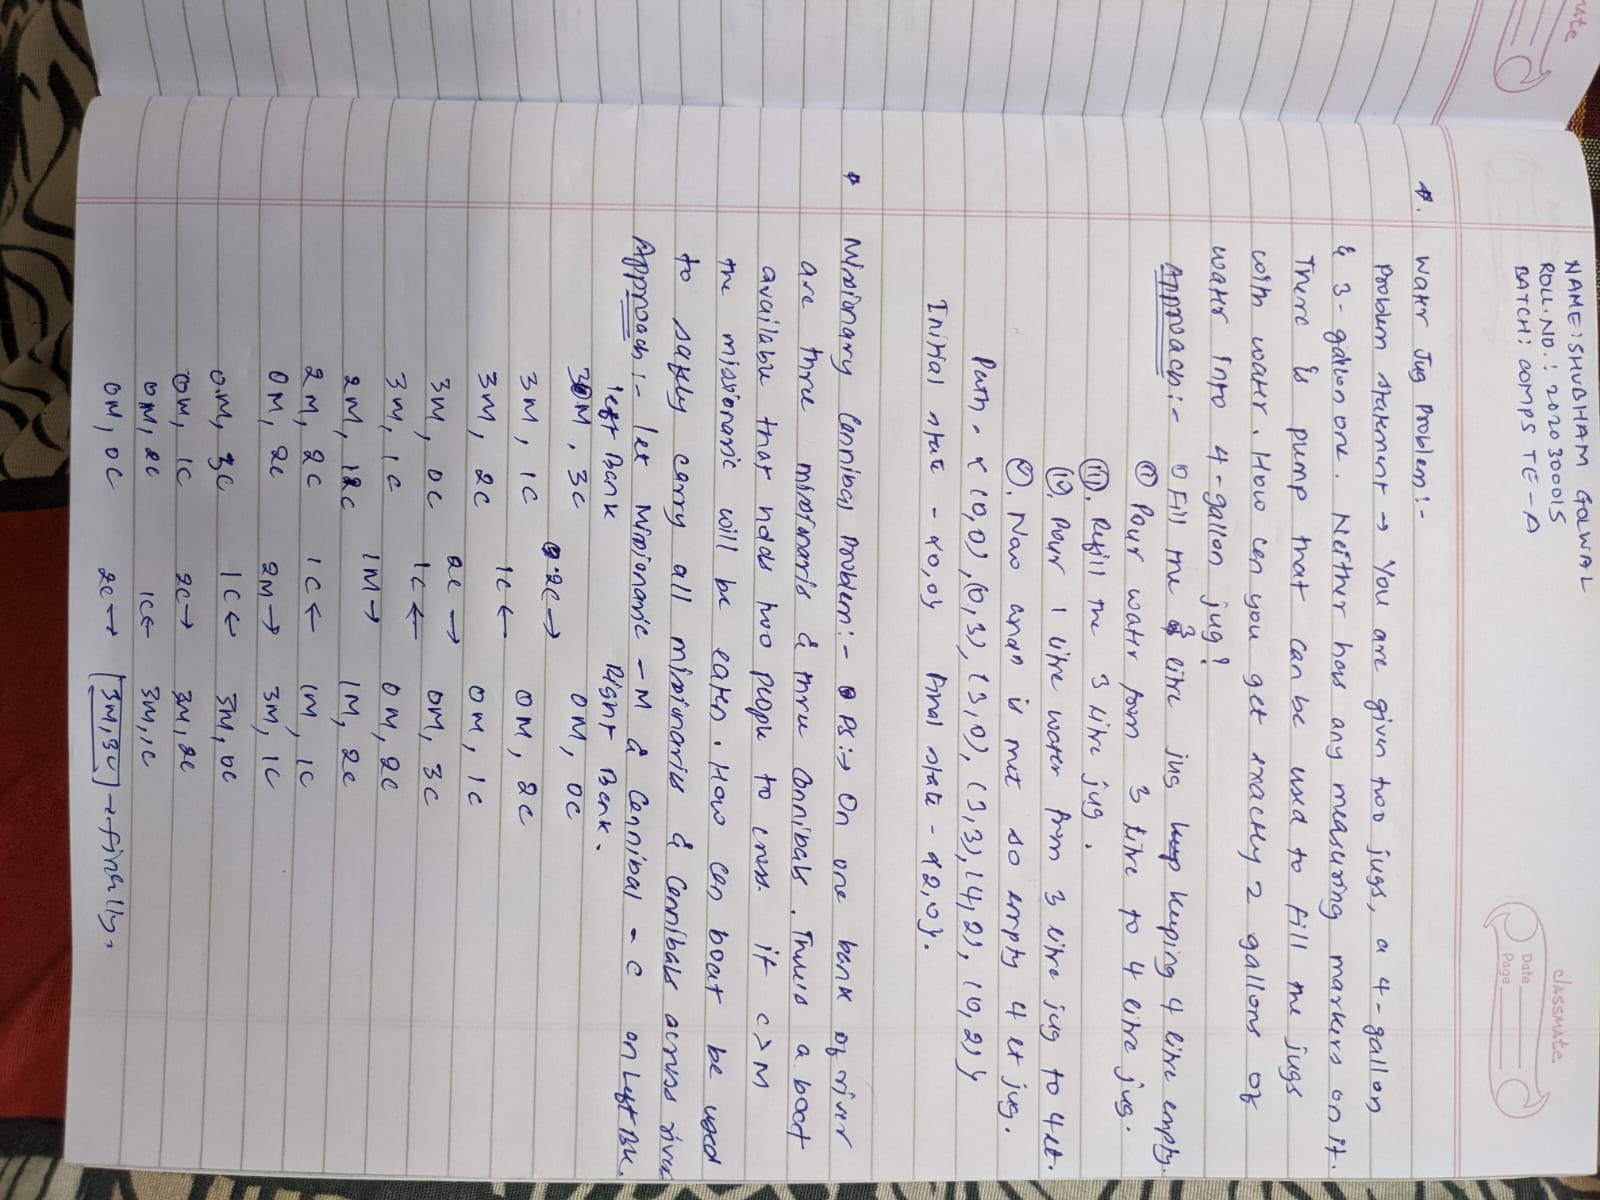 NAME: SHUBHAM GOLWAL
ROLL. NO. : 2020300015
BATCH: COMPS TE-A
classmate
Date
Page
Water Jug Problem:-
Problem statement → You are given two jugs, a 4-gallon
& 3-gallon one. Neither has any measuring markers on it.
There is pump that can be used to fill the jugs
with water. How can you get exactly 2 gallons of
water into 4-gallon jug?
Approach:- (i) Fill the 3 litre jug keeping 4 litre empty.
(ii) Pour water from 3 litre to 4 litre jug.
(iii). Refill the 3 litre jug.
(iv). Pour 1 litre water from 3 litre jug to 4 lt.
(v). Now is met so empty 4 lt jug.
Path - {(0,0), (0,3), (3,0), (3,3), (4,2), (0,2)}
Initial state - {0,0} Final state - {2,0}.
Missionary Cannibas Problem:- PS:→ On one bank of river
are three missionaris & three Cannibals. There is a boat
available that holds two people to cross. if C>M
the missionaric will be eaten. How can boat be used
to safely carry all missionaries & Cannibals across river
Approach:- let Missionaric - M & Cannibal - C on Left Bk.
left Bank Right Bank.
3M, 3C 0M, 0C
2C →
3M, 1C 0M, 2C
1C ←
3M, 2C 0M, 1C
2C →
3M, 0C 0M, 3C
1C ←
3M, 1C 0M, 2C
1M →
2M, 1C 1M, 2C
2M, 2C 1C ← 1M, 1C
0M, 2C 2M → 3M, 1C
0M, 3C 1C ← 3M, 0C
0M, 1C 2C → 3M, 2C
0M, 2C 1C ← 3M, 1C
0M, 0C 2C → 3M, 3C → finally.